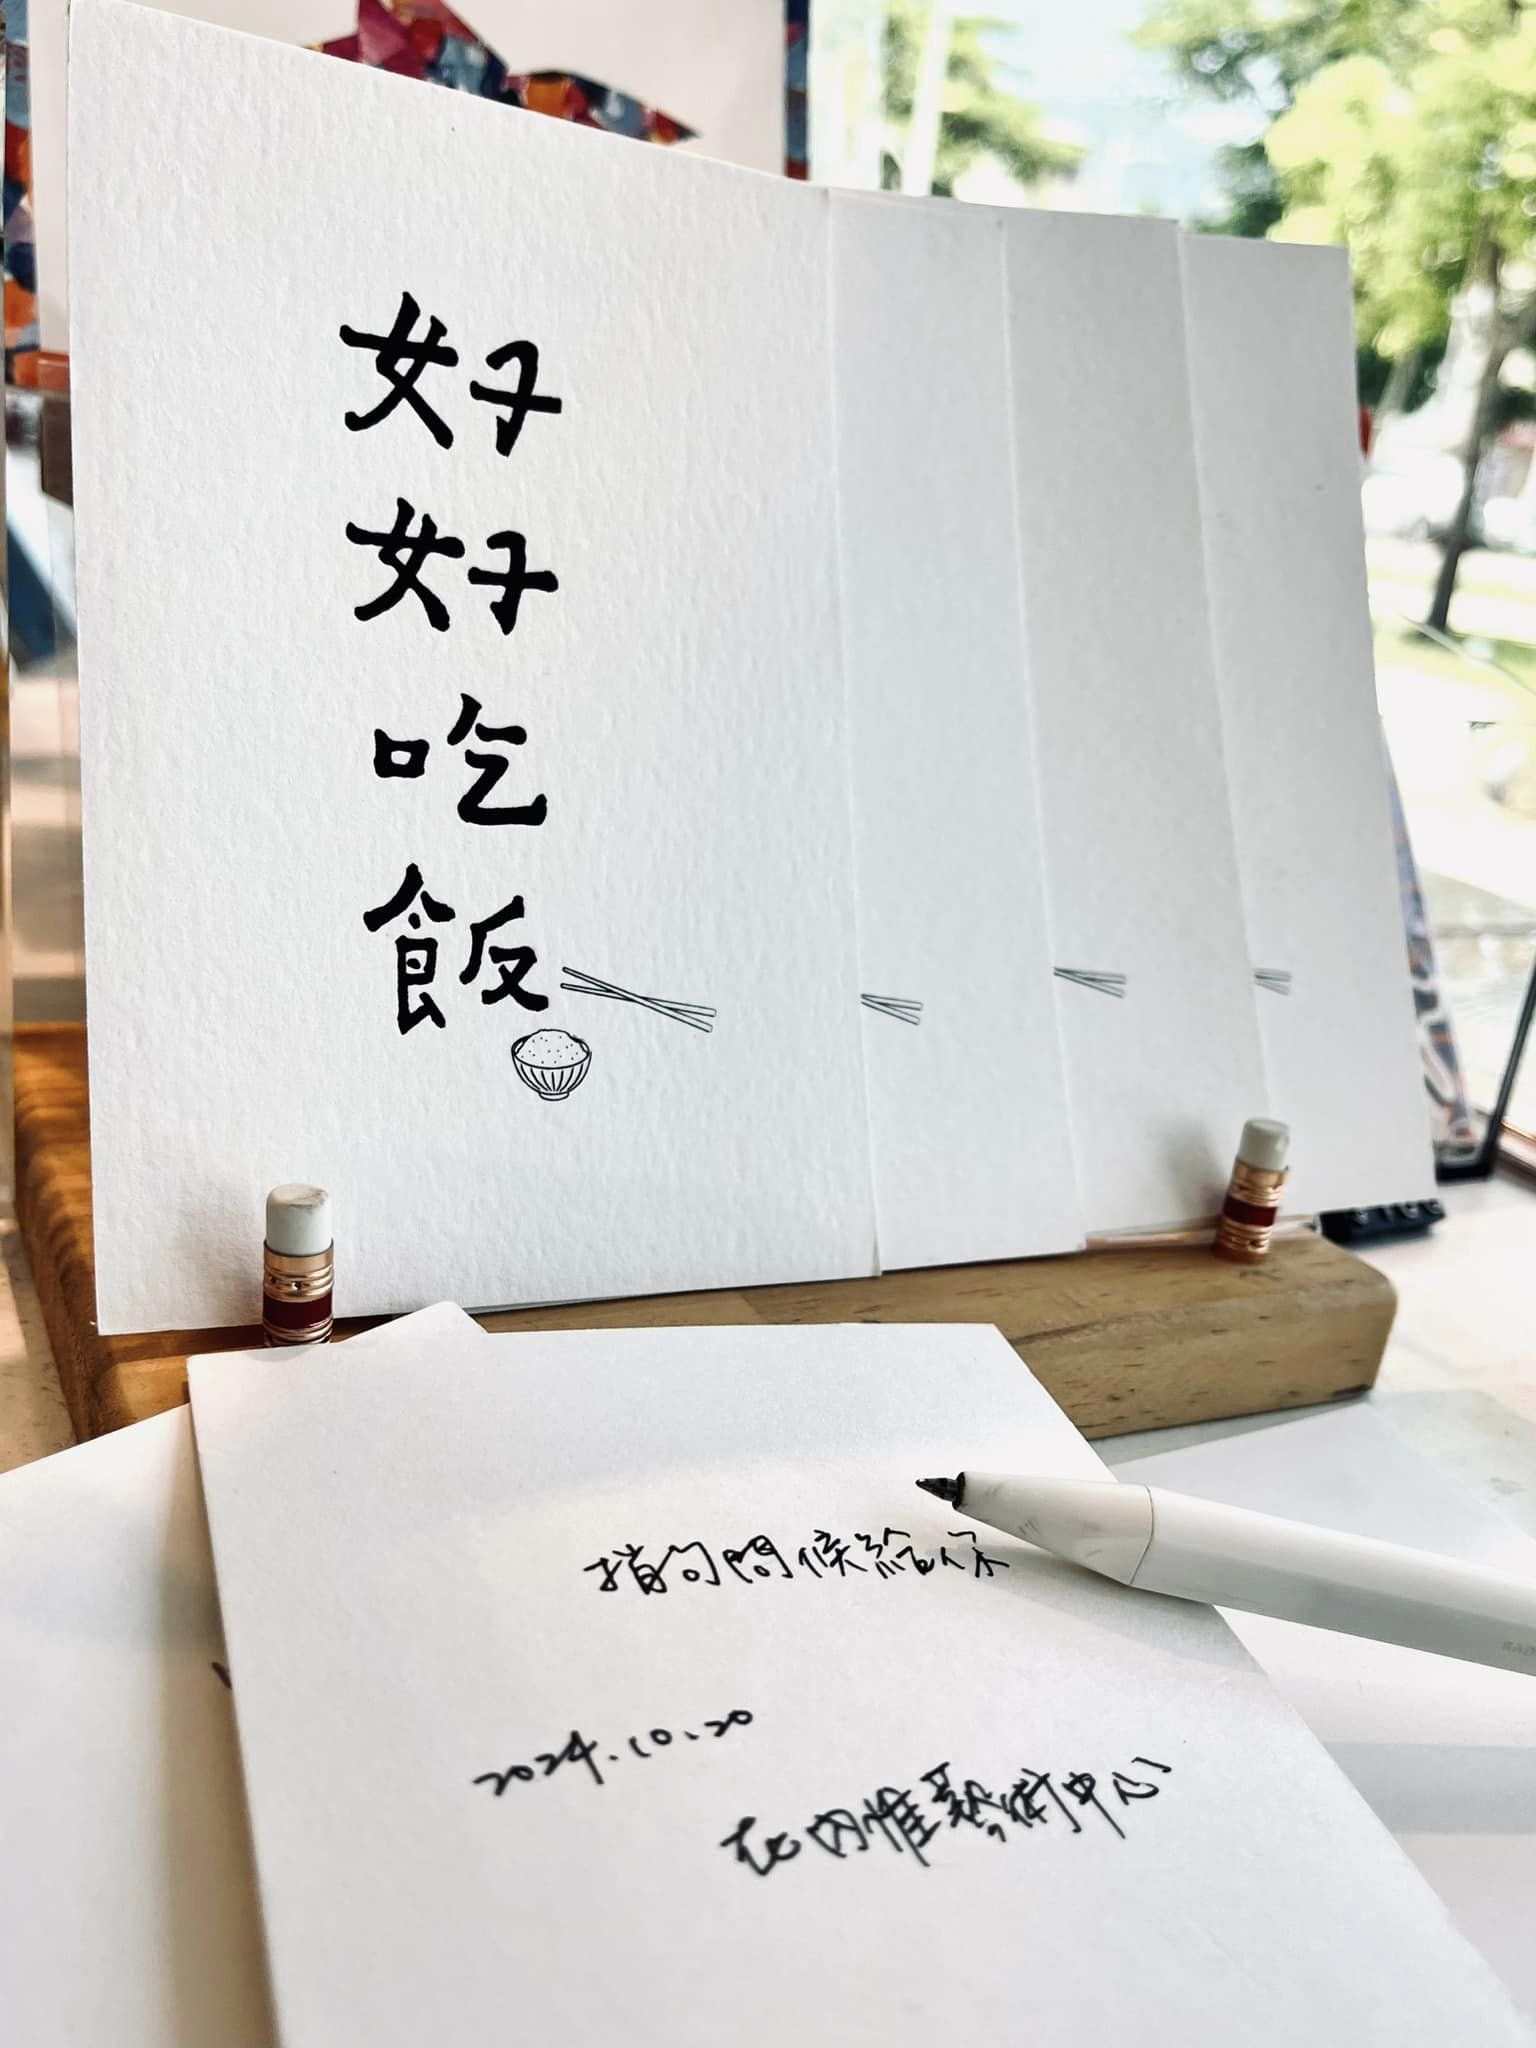 好好吃飯
捎句問候給你
2024.10.20
在內惟藝術中心